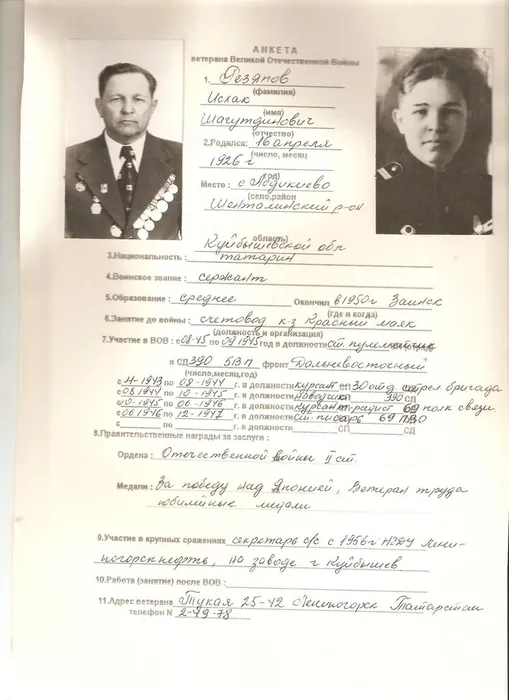 АНКЕТА
ветерана Великой Отечественной Войны
1. Резяпов
(фамилия)
Исхак
(имя)
Шагутдинович
(отчество)
2.Родился: 16 апреля
(число, месяц
1926 г
год)
Место : с Абдикиево
(село,район
Шенталинский р-он
область)
Куйбышевской обл
3.Национальность : татарин
4.Воинское звание : сержант
5.Образование : среднее Окончил в 1950г Заинск
(где и когда)
6.Занятие до войны : счетовод к-з Красный маяк
(должность и организация)
7.Участие в ВОВ : с 08-45 по 09 1945 год в должности ст. пулеметчик
и СД 390 СП фронт Дальневосточный
(число,месяц,год)
с 11-1943 по 08-1944 г. в должности курсант СП 30 отд. стрел бригада
с 08 1944 по 10-1945 г. в должности наводчик 390 СД
по 06-1946 г. в должности курсант-радист 69 полк связи
с 06 1946 по 12-1947 г. в должности ст. писарь 69 СД
с по г. в должности СП СД
8.Правительственные награды за заслуги :
Ордена : Отечественной войны II ст.
Медали : За победу над Японией, Ветеран труда
юбилейные медали
9.Участие в крупных сражениях секретарь с/с с 1956г НГДУ Лени-
ногорскнефть, на заводе г Куйбышев
10.Работа (занятие) после ВОВ :
11.Адрес ветерана Тукая 25-42 Лениногорск Татарстан
телефон N 2-49-78